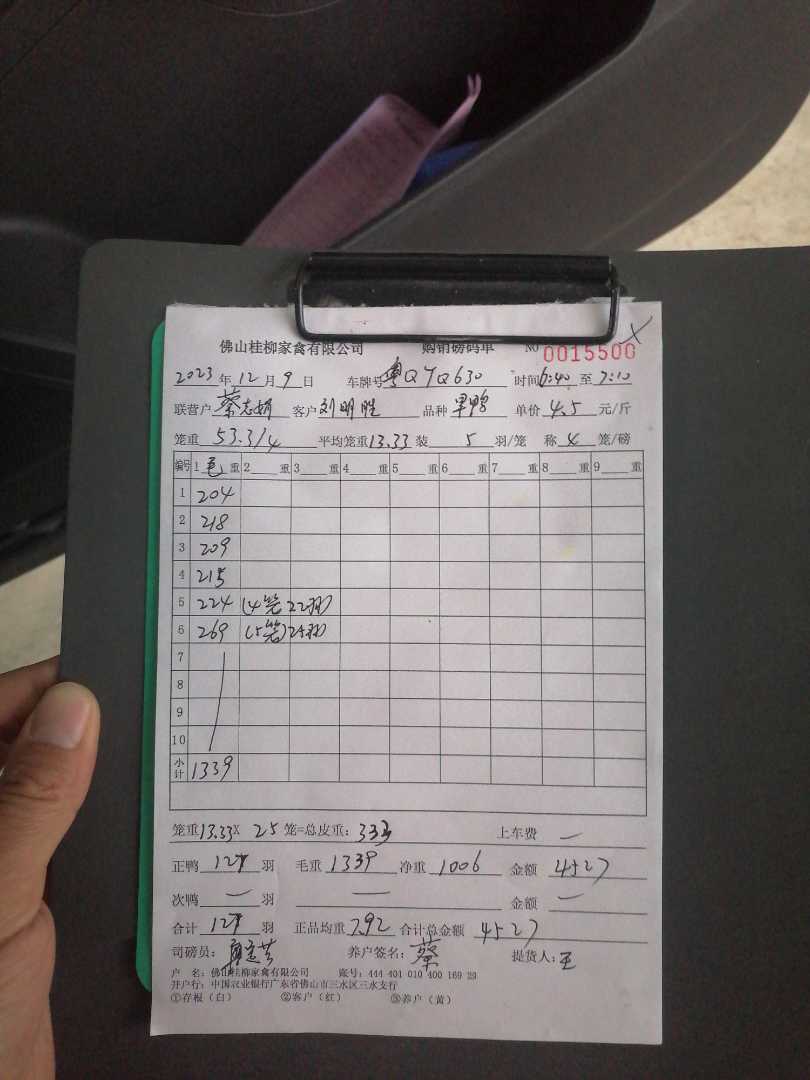 佛山桂柳家禽有限公司 购销磅码单 NO 0015500
2023 年 12 月 9 日 车牌号 粤Q7Q630 时间 6:40 至 7:10
联营户 蔡志娟 客户 刘明胜 品种 单价 4.5 元/斤
笼重 53.3/4 平均笼重 13.33 装 5 羽/笼 称 4 笼/磅
编号 1 毛 重 2 重 3 重 4 重 5 重 6 重 7 重 8 重 9 重
1 204
2 218
3 209
4 215
5 224 (4笼 22羽)
6 269 (5笼) 25羽
7
8
9
10
小计 1339
笼重 13.33 X 25 笼=总皮重: 333 上车费 一
正鸭 127 羽 毛重 1339 净重 1006 金额 4527
次鸭 一 羽 一 金额 一
合计 127 羽 正品均重 7.92 合计总金额 4527
司磅员: 养户签名: 蔡 提货人: 王
户 名: 佛山桂柳家禽有限公司 账号: 444 401 010 400 169 29
开户行: 中国农业银行广东省佛山市三水区三水支行
①存根(白) ②客户(红) ③养户(黄)